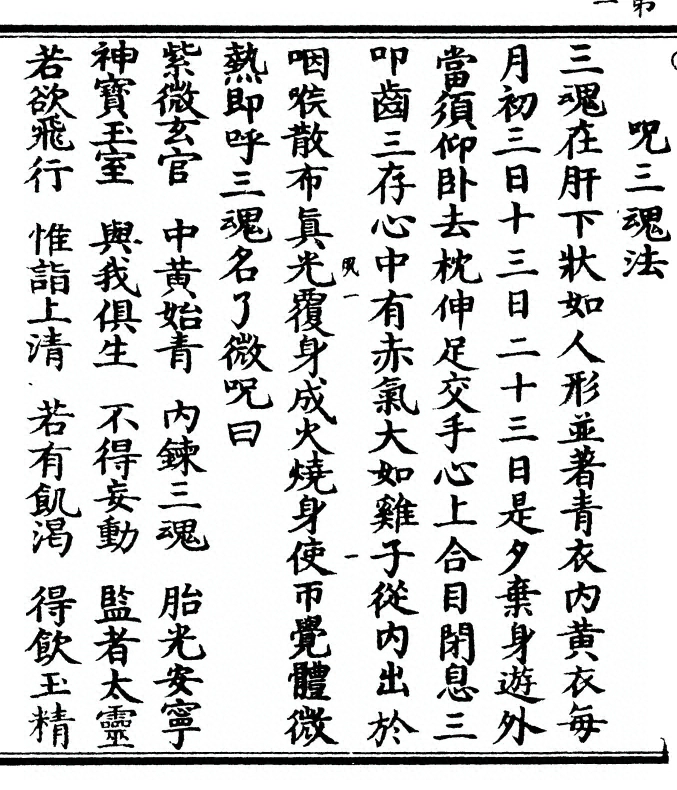 呪三魂法
三魂在肝下狀如人形並著青衣内黄衣每
月初三日十三日二十三日是夕棄身遊外
當須仰卧去枕伸足交手心上合目閉息三
叩齒三存心中有赤氣大如雞子從内出於
咽喉散布眞光覆身成火燒身使帀覺體微
熱即呼三魂名了微呪曰
紫微玄官　中黄始青　内鍊三魂　胎光安寧
神寶玉室　與我俱生　不得妄動　監者太靈
若欲飛行　惟詣上清　若有飢渴　得飲玉精